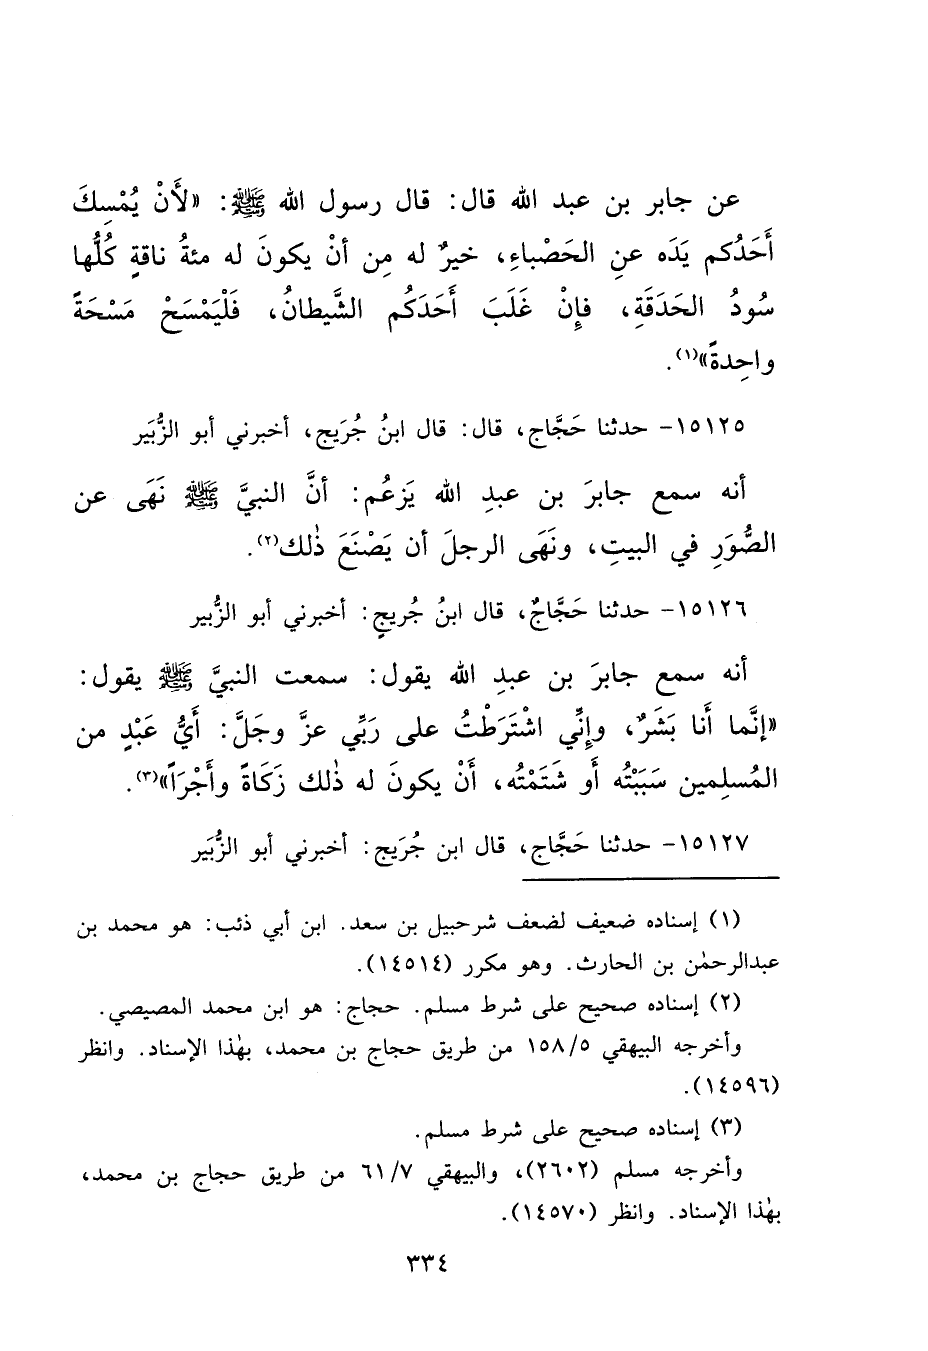 عن جابر بن عبد الله قال: قال رسول الله ﷺ: «لَأَنْ يُمْسِكَ
أَحَدُكم يَدَه عنِ الحَصْباءِ، خيرٌ له مِن أنْ يكونَ له مئةُ ناقةٍ كُلُّها
سُودُ الحَدَقَةِ، فإِنْ غَلَبَ أَحَدَكُم الشَّيطانُ، فَلْيَمْسَحْ مَسْحَةً
واحِدةً»(١).
١٥١٢٥- حدثنا حَجَّاج، قال: قال ابنُ جُرَيج، أخبرني أبو الزُّبَير
أنه سمع جابرَ بن عبدِ الله يَزعُم: أنَّ النبيَّ ﷺ نَهَى عن
الصُّوَرِ في البيتِ، ونَهَى الرجلَ أن يَصْنَعَ ذٰلك(٢).
١٥١٢٦- حدثنا حَجَّاجٌ، قال ابنُ جُريجٍ: أخبرني أبو الزُّبير
أنه سمع جابرَ بن عبدِ الله يقول: سمعت النبيَّ ﷺ يقول:
«إنَّما أنا بَشَرٌ، وإنِّي اشْتَرَطْتُ على رَبِّي عزَّ وجَلَّ: أَيُّ عَبْدٍ من
المُسلِمين سَبَبْتُه أو شَتَمْتُه، أَنْ يكونَ له ذٰلك زَكَاةً وأَجْرَاً»(٣).
١٥١٢٧- حدثنا حَجَّاج، قال ابن جُرَيج: أخبرني أبو الزُّبَير
(١) إسناده ضعيف لضعف شرحبيل بن سعد. ابن أبي ذئب: هو محمد بن
عبدالرحمٰن بن الحارث. وهو مكرر (١٤٥١٤).
(٢) إسناده صحيح على شرط مسلم. حجاج: هو ابن محمد المصيصي.
وأخرجه البيهقي ١٥٨/٥ من طريق حجاج بن محمد، بهٰذا الإسناد. وانظر
(١٤٥٩٦).
(٣) إسناده صحيح على شرط مسلم.
وأخرجه مسلم (٢٦٠٢)، والبيهقي ٦١/٧ من طريق حجاج بن محمد،
بهٰذا الإسناد. وانظر (١٤٥٧٠).
٣٣٤